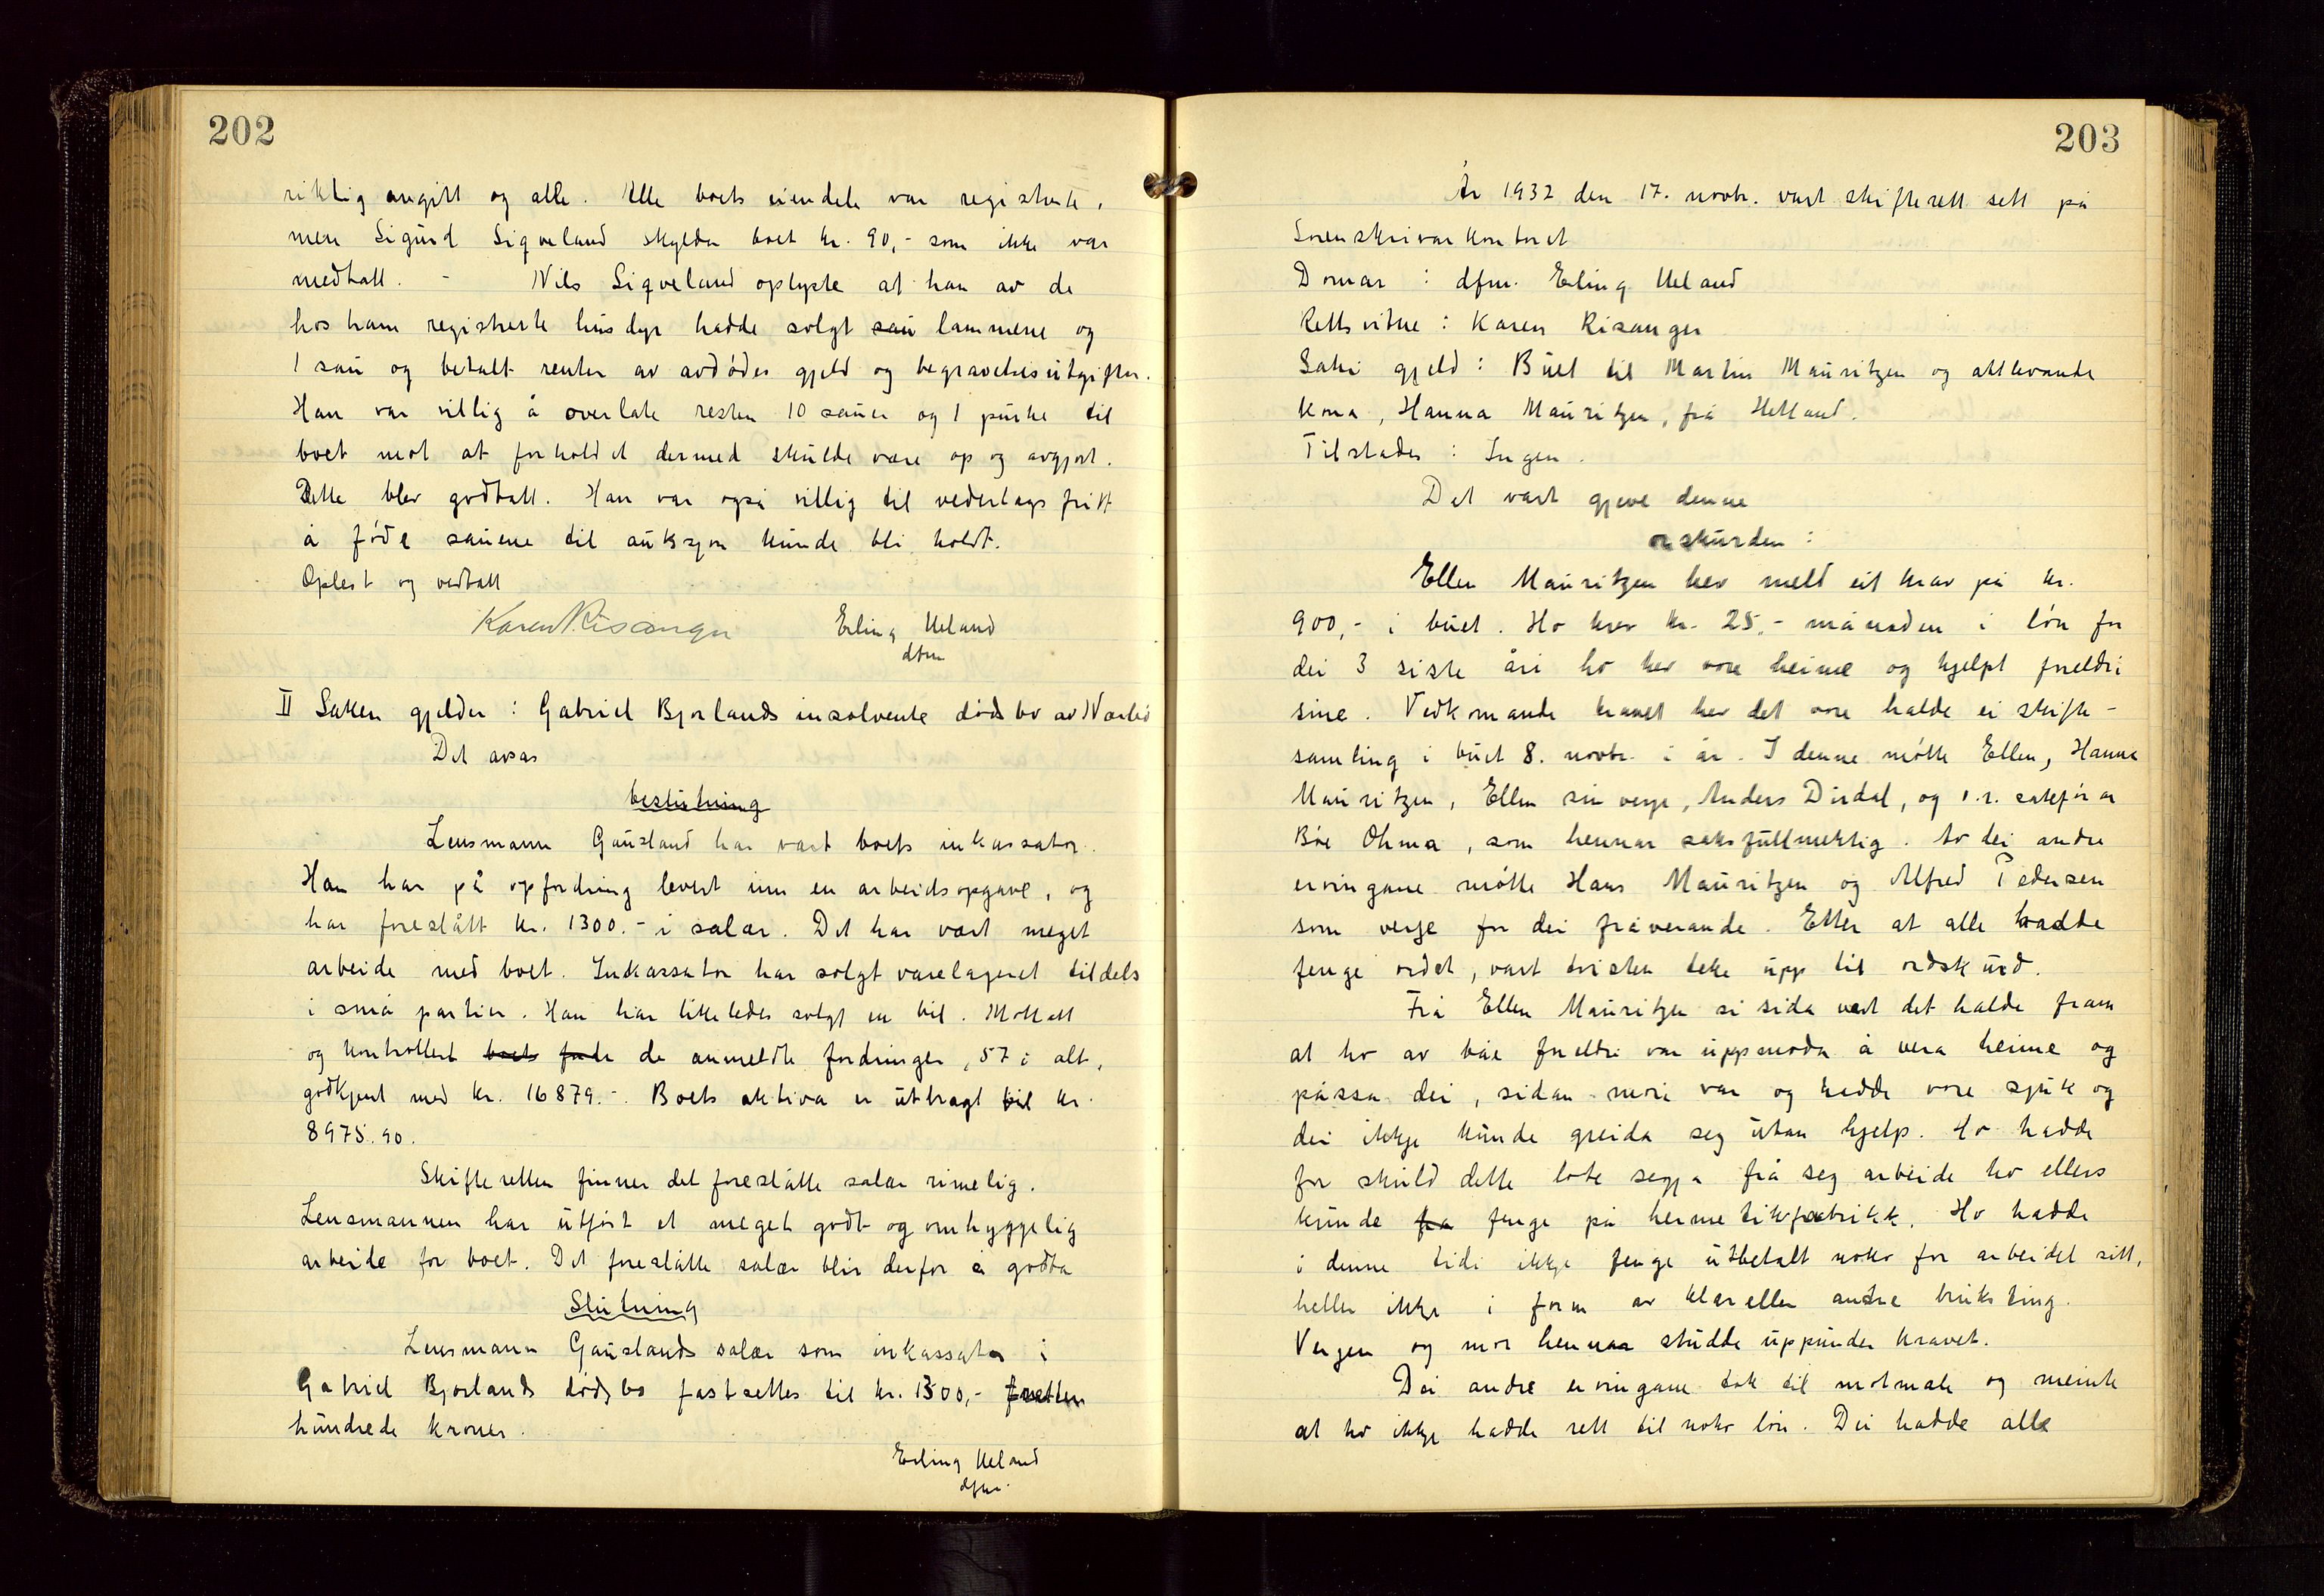 202
riktig angitt og alle. Alle boets eiendele var registrerte,
men Sigurd Sigveland skylder boet kr. 90,- som ikke var
medtatt. - Nils Sigveland oplyste at han av de
hos ham registrerte husdyr hadde solgt sau lammene og
1 sau og betalt renter av avdødes gjeld og begravelsesutgifter.
Han var villig å overlate resten 10 sauer og 1 purke til
boet mot at forholdet dermed skulde være op og avgjort.
Dette blev godtatt. Han var også villig til vederlagsfritt
å føde sauene til auksjon kunde bli holdt.
Oplest og vedtatt
Karen Risanger Erling Ueland
dfm
II Saken gjelder: Gabriel Bjorlands insolvente dødsbo av Nærbø
Det avsas
beslutning
Lensmann Gausland har vært boets inkassator.
Han har på opfordring levert inn en arbeidsopgave, og
har foreslått kr. 1300.- i salær. Det har vært meget
arbeide med boet. Inkassator har solgt varelageret tildels
i små partier. Han har likeledes solgt en bil. Mottatt
og kontrollert boets forde de anmeldte fordringer, 57 i alt,
godkjent med kr. 16879.-. Boets aktiva er utbragt til kr.
8975.90.
Skifteretten finner det foreslåtte salær rimelig.
Lensmannen har utført et meget godt og omhyggelig
arbeide for boet. Det foreslåtte salær blir derfor å godta
Slutning
Lensmann Gauslands salær som inkassator i
Gabriel Bjorlands dødsbo fastsettes til kr. 1300,- fretten
hundrede kroner.
Erling Ueland
dfm.
203
År 1932 den 17. novbr. vart skifterett sett på
Sorenskrivarkontoret
Domar: dfm. Erling Ueland
Rettsvitne: Karen Risanger
Saki gjeld: Buet til Martin Mauritzen og attlevande
kona, Hanna Mauritzen, frå Hetland.
Tilstades: Ingen.
Det vart gjeve denne
orskurden:
Ellen Mauritzen hev meld eit krav på kr.
900,- i buet. Ho krev kr. 25,- månaden i løn for
dei 3 siste åri ho hev vore heime og hjelpt foreldri
sine. Vedkomande kravet hev det vore halde ei skifte-
samling i buet 8. novbr. i år. I denne møtte Ellen, Hanna
Mauritzen, Ellen sin verje, Anders Dirdal, og o.r. sakførar
Bøe Ohma, som hennar saksfullmektig. Av dei andre
ervingane møtte Hans Mauritzen og Alfred Pedersen
som verje for dei fråverande. Etter at alle hadde
fenge ordet, vart tvisten teke upp til ordskurd.
Frå Ellen Mauritzen si sida vart det halde fram
at ho av båe foreldri var uppmoda å vera heime og
passa dei, sidan mori var og hadde vore sjuk og
dei ikkje kunde greida seg utan hjelp. Ho hadde
for skuld dette lote segja frå seg arbeide ho ellers
kunde fa fenge på hermetikkfabrikk. Ho hadde
i denne tidi ikkje fenge utbetalt noko for arbeidet sitt,
heller ikkje i form av klær eller andre brukting.
Verjen og mor hennar studde uppunder kravet.
Dei andre ervingane tok til motmæle og meinte
at ho ikkje hadde rett til noko løn. Dei hadde alle